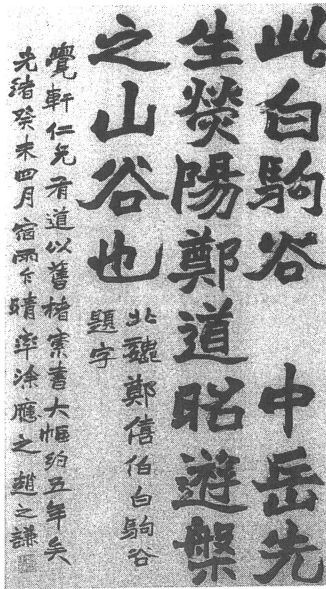 此白駒谷　中岳先
生熒陽鄭道昭遊槃
之山谷也
北魏鄭僖伯白駒谷
題字
覺軒仁兄有道以舊楮索書大幅約五年矣
光緒癸未四月宿雨乍晴率涂應之趙之謙